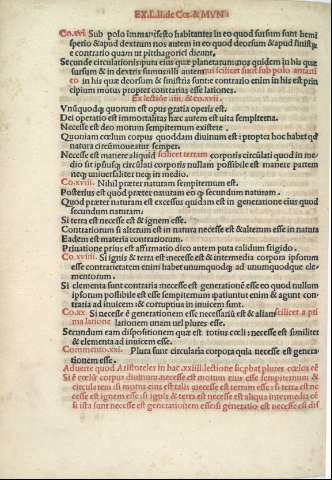 EX.L.II.de Coe.& MVN
Co.xvi Sub polo immanifesto habitantes in eo quod sursum sunt hemi
sperio & apud dextrum nos autem in eo quod deorsum & apud sinistrũ
e contrario quam ut pithagorici dicunt.
Secunde circulationis puta eius quæ planetarum nos quidem in his quæ
sursum & in dextris sumus illi autem scilicet sunt sub polo antarti
co in his quæ deorsum & sinistris sunt e contrario enim in his est prin
cipium motus propter contrarias esse lationes.
Ex lectione .iiii. & co.xvii.
Vnũquodq; quorum est opus gratia operis est.
Dei operatio est immortalitas hæc autem est uita sempiterna.
Necesse est deo motum sempiternum existere.
Quoniam coelum corpus quoddam diuinum est: propter hoc habet
natura circũmouetur semper.
Necesse est manere aliquid scilicet terram corporis circulati quod in me
dio sit ipsiusq; circulati corporis nullam possibile est manere partem
neq; uniuersaliter neq; in medio.
Co.xviii. Nihil præter naturam sempiternum est.
Posterius est quod præter naturam eo quod secundum naturam.
Quod præter naturam est excessus quidam est in generatione eius quod
secundum naturam:
Si terra est necesse est & ignem esse.
Contrariorum si alterum est in natura necesse est & alterum esse in natura
Eadem est materia contrariorum.
Priuatione prius est affirmatio dico autem puta calidum frigido.
Co.xviiii. Si ignis & terra est necesse est & intermedia corpora ipsorum
esse contrarietatem enim habet unumquodq; ad unumquodque ele
mentorum.
Si elementa sunt contraria necesse est generationẽ esse eo quod nullum
ipsorum possibile est esse sempiternum patiuntur enim & agunt con
traria ad inuicem & corruptiua in inuicem sunt.
Co.xx Si necesse ẽ generationem esse necessariũ est & aliam scilicet a pri
ma latione lationem unam uel plures esse.
Secundum eam dispositionem quæ est totius coeli: necesse est similiter
& elementa ad inuicem esse.
Commento.xxi. Plura sunt circularia corpora quia necesse est genera
tionem esse.
Aduerte quod Aristoteles in hac .xxiiii. lectione sic pbat plures coelos eẽ
Si ẽ coelũ corpus diuinum: necesse est motum eius esse sempiternum &
circularem si motus eius est talis necesse est terram esse: si terra est ne
cesse est ignem esse si ignis & terra est necesse est aliqua intermedia eẽ
si ista sunt necesse est generationem esse si generatio est necesse est dis